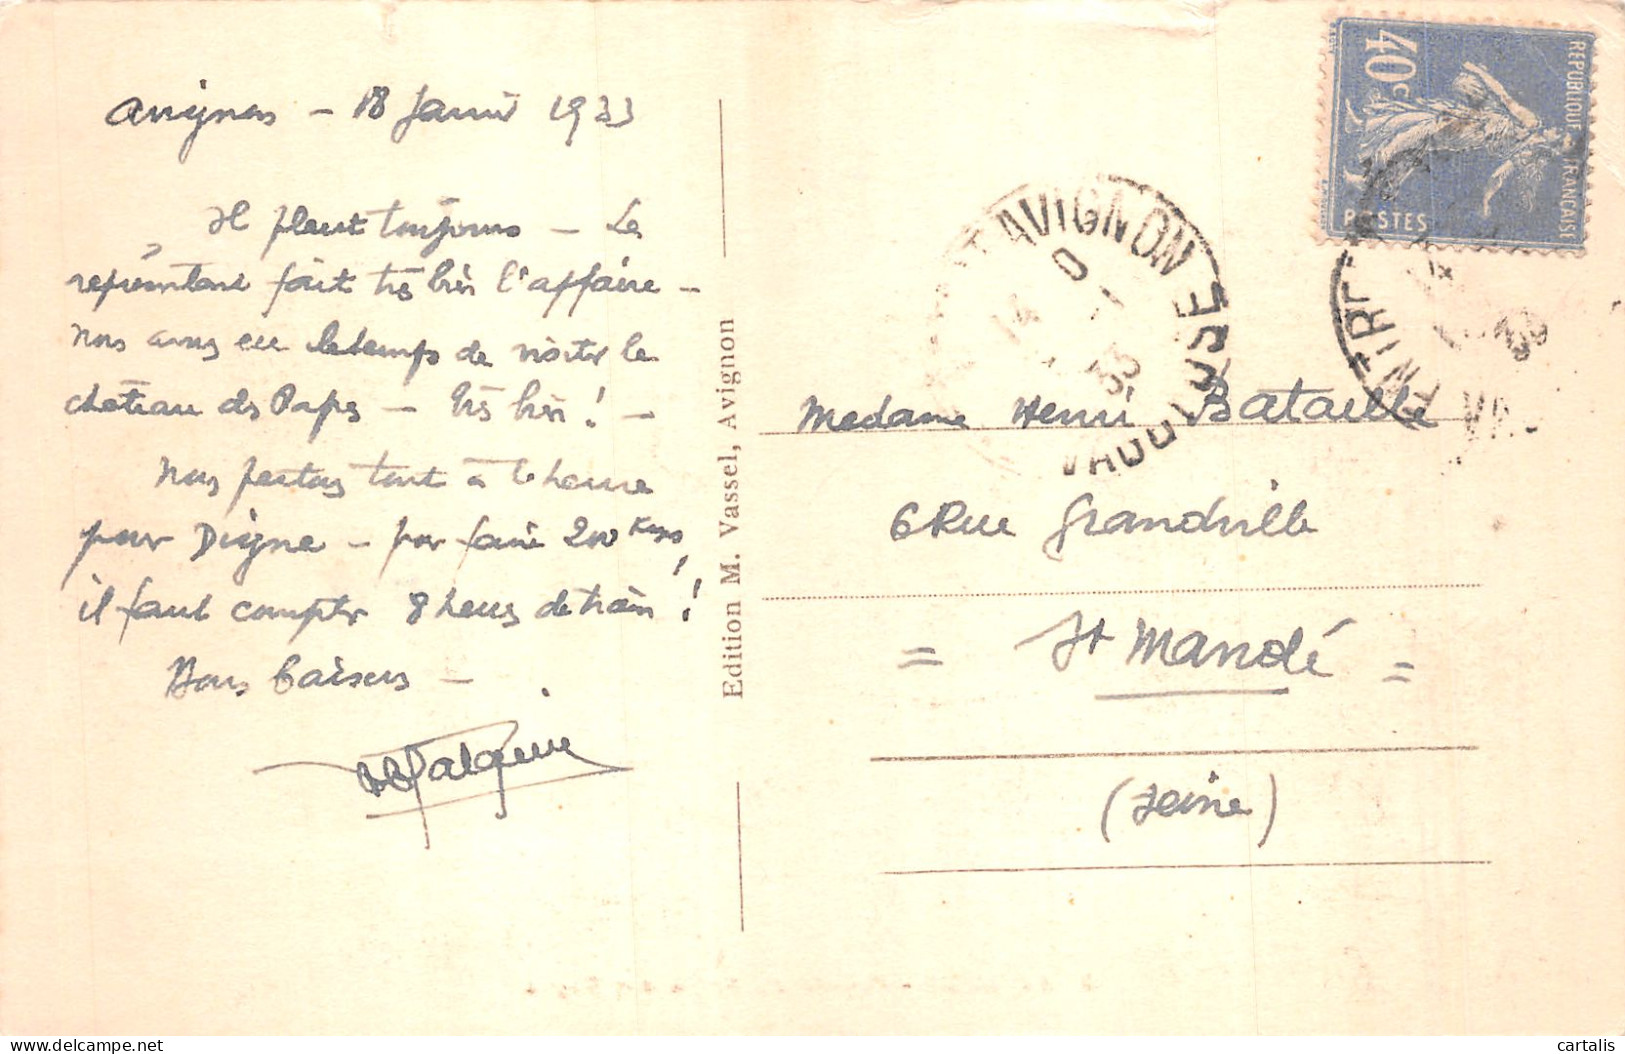 Avignon - 18 Janvier 1933
Il pleut toujours - Le
représentant fait très bien l'affaire -
nous avons eu le temps de visiter le
château des Papes - très bien! -
Nous partons tout à l'heure
pour Digne - pour faire 200 Kms,
il faut compter 8 heures de train!
Bons baisers -
Edition M. Vassel, Avignon
REPUBLIQUE FRANÇAISE
40c
POSTES
AVIGNON
VAUCLUSE
14
33
Madame Henri Bataille
6 Rue Grandville
= St Mandé =
(Seine)
delcampe.net
cartalis